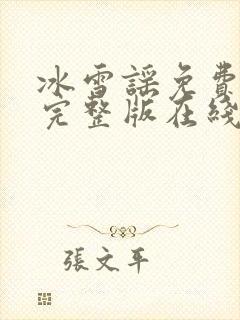 冰雪謠免費
完整版在綫
張文平